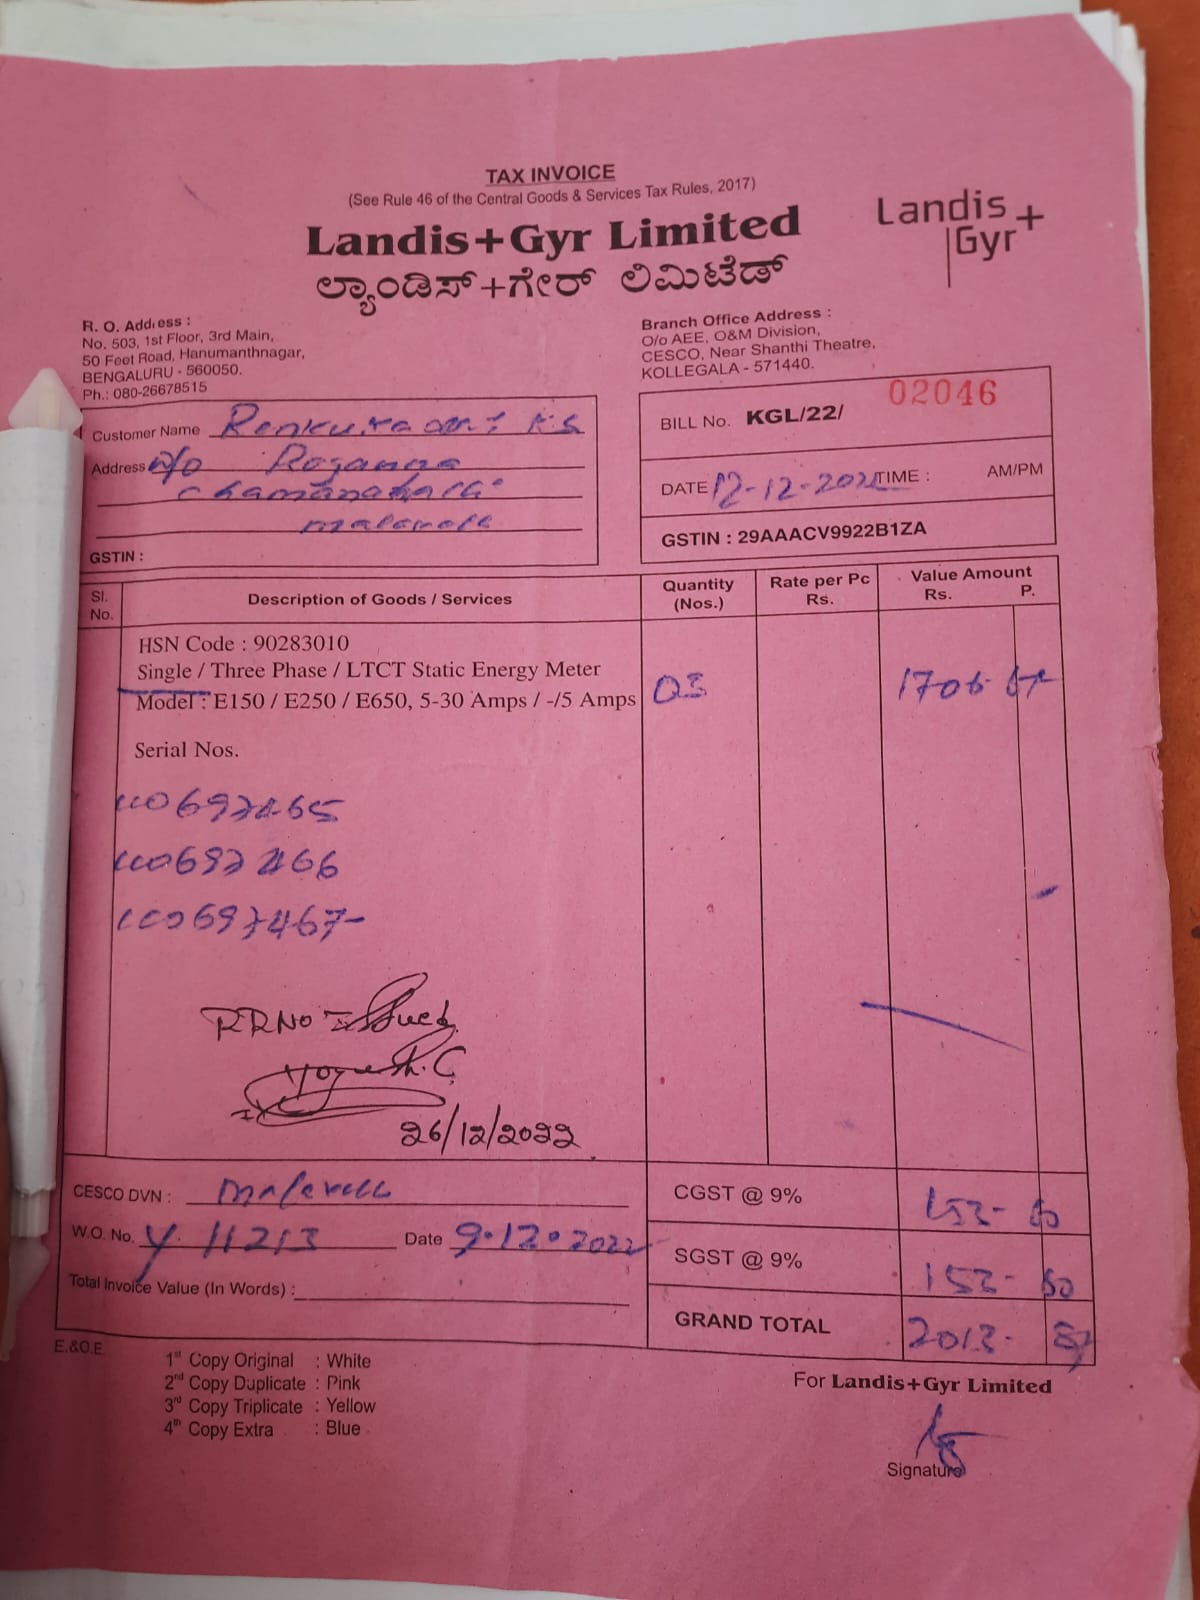 TAX INVOICE
(See Rule 46 of the Central Goods & Services Tax Rules, 2017)
Landis+Gyr Limited
ಲ್ಯಾಂಡಿಸ್+ಗೇರ್ ಲಿಮಿಟೆಡ್
Landis
Gyr+
R. O. Address :
No. 503, 1st Floor, 3rd Main,
50 Feet Road, Hanumanthnagar,
BENGALURU - 560050.
Ph.: 080-26678515
Branch Office Address :
O/o AEE, O&M Division,
CESCO, Near Shanthi Theatre,
KOLLEGALA - 571440.
Customer Name
Address
GSTIN :
BILL No. KGL/22/ 02046
DATE 12-12-2022 TIME : AM/PM
GSTIN : 29AAACV9922B1ZA
Sl. No. Description of Goods / Services Quantity (Nos.) Rate per Pc Rs. Value Amount Rs. P.
HSN Code : 90283010
Single / Three Phase / LTCT Static Energy Meter
Model : E150 / E250 / E650, 5-30 Amps / -/5 Amps 03 1706 67
Serial Nos.
RRNO Issued
Yogesh. C
26/12/2022
CESCO DVN : Malavalli
W.O. No. Y 11213 Date 9.12.2022
Total Invoice Value (In Words) :
CGST @ 9% 153-60
SGST @ 9% 153-60
GRAND TOTAL 2013-87
E.&O.E.
1st Copy Original : White
2nd Copy Duplicate : Pink
3rd Copy Triplicate : Yellow
4th Copy Extra : Blue
For Landis+Gyr Limited
Signature